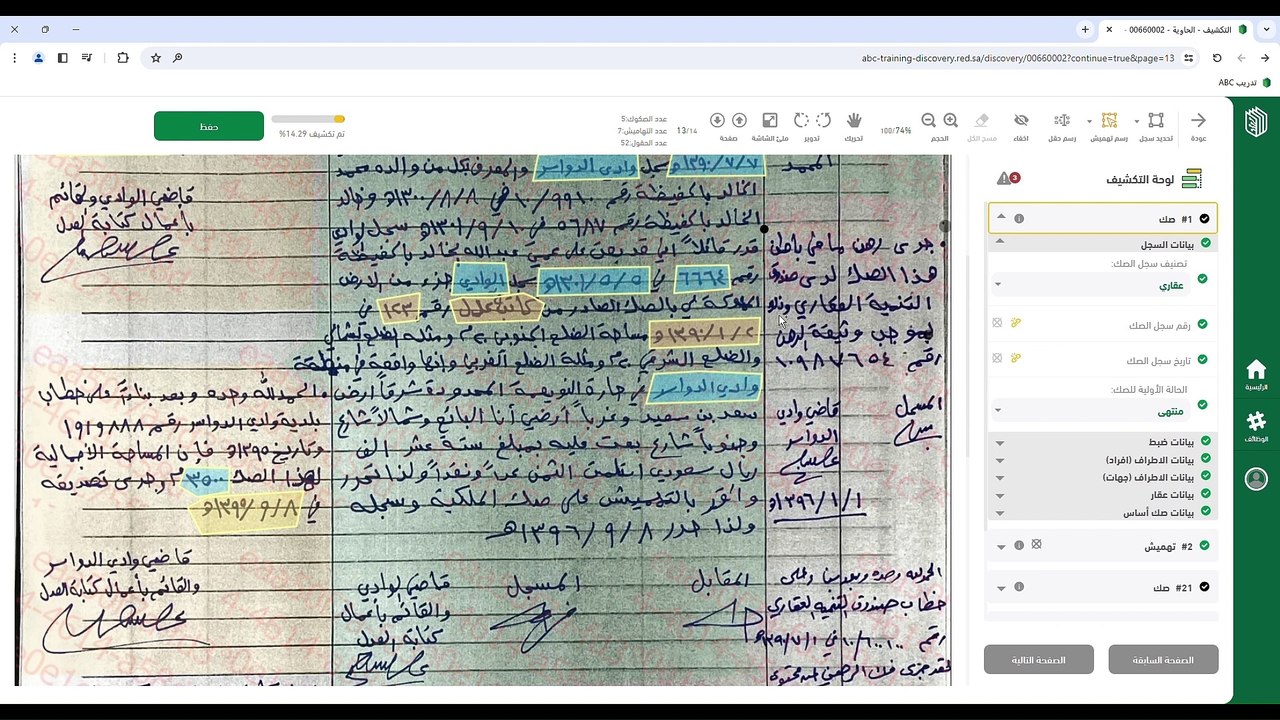 التكشيف - الحاوية - 00660002
abc-training-discovery.red.sa/discovery/00660002?continue=true&page=13
تدريب ABC
عودة
تحديد سجل
رسم تهميش
رسم حقل
اخفاء
مسح الكل
100/74%
الحجم
تحريك
تدوير
ملئ الشاشة
صفحة
13/14
عدد الصكوك:5
عدد التهاميش:7
عدد الحقول:52
تم تكشيف 14.29%
حفظ
لوحة التكشيف
3
#1 صك
بيانات السجل
تصنيف سجل الصك:
عقاري
رقم سجل الصك
تاريخ سجل الصك
الحالة الأولية للصك:
منتهى
بيانات ضبط
بيانات الاطراف (افراد)
بيانات الاطراف (جهات)
بيانات عقار
بيانات صك أساس
#2 تهميش
#21 صك
الصفحة السابقة
الصفحة التالية
الرئيسية
الوظائف
١٣٩٠/٧/٧هـ سجل وادي الدواسر والمعرف بكل من والده محمد
الخالد بالحفيظة رقم ١٠٩٩١٠ في ١٣٠٠/٨/٨هـ وخالد
رقم ٦٦٦٤ في ١٣٠١/٥/٥هـ سجل الوادي جزء من الأرض
رقم ١٢٣ في
١٣٩٠/١/٢هـ مساحة الضلع الجنوبي
والضلع الشرقي
وادي الدواسر
سعد بن سعيد وغرباً أرضي أنا البائع وشمالاً شارع
وجنوباً شارع بعت عليه بمبلغ ستة عشر الف
ريال سعودي استلمت الثمن
بالتهميش على صك الملكية وسجله
ولذا حرر ١٣٩٦/٩/٨هـ
المقابل
المسجل
قاضي الوادي
والقائم بأعمال
كتابة العدل
جرى رهن ما في باطن
هذا الصك لدى صندوق
التنمية العقاري
بموجب وثيقة الرهن
رقم ١٠٩٨٧٦٥٤
قاضي وادي
الدواسر
١٣٩٦/١/١هـ
المسجل
الحمدلله وحده وبعد بناء على
خطاب صندوق التنمية العقاري
قاضي الوادي والقائم
بأعمال كتابة العدل
والحمدلله وحده وبعد بناءً على خطاب
بلدية وادي الدواسر رقم ١٩١٩٨٨٨
وتاريخ ١٣٩٥هـ فإن المساحة الإجمالية
لهذا الصك ٣٥٠٠م وجرى تصديقه
في ١٣٩٩/٩/٨هـ
قاضي وادي الدواسر
والقائم بأعمال كتابة العدل